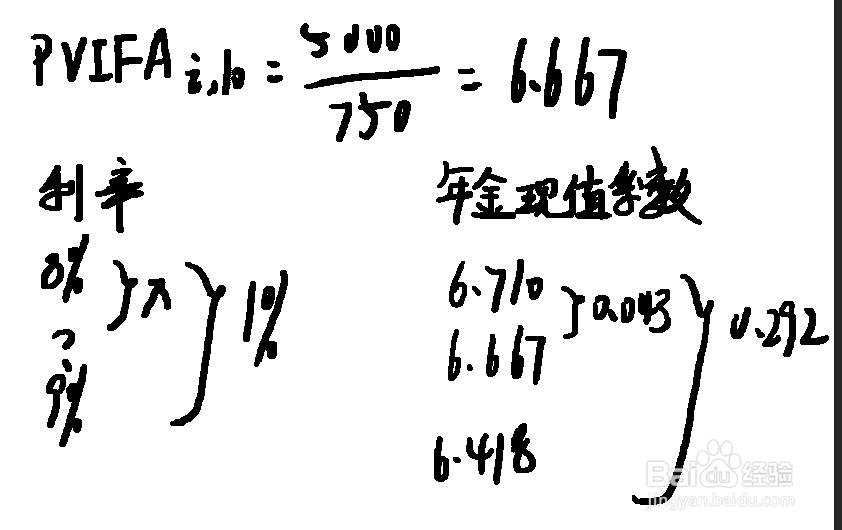 PVIFA i,10 = 5000/750 = 6.667
利率 年金现值系数
8% } x } 1% 6.710 } 0.043 } 0.292
? 6.667
9% 6.418
Baidu经验
jingyan.baidu.com